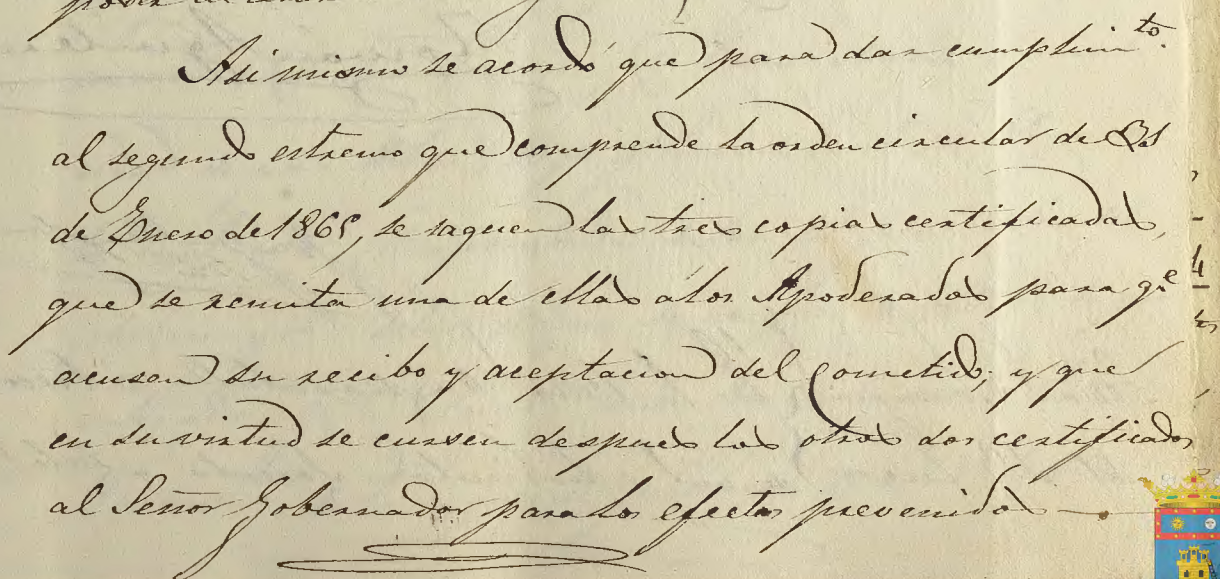 poder
Asi mismo se acordó que para dar cumplim.to
al segundo estremo que comprende la orden circular de
de Enero de 1865, se saquen las tres copias certificadas,
que se remita una de ellas á los Apoderados para q.e
acusen su recibo y aceptacion del cometido; y que
en su virtud se cursen despues las otras dos certificados
al Señor Gobernador para los efectos prevenidos